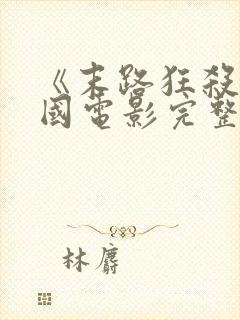 《末路狂殺
國電影完整
林麝